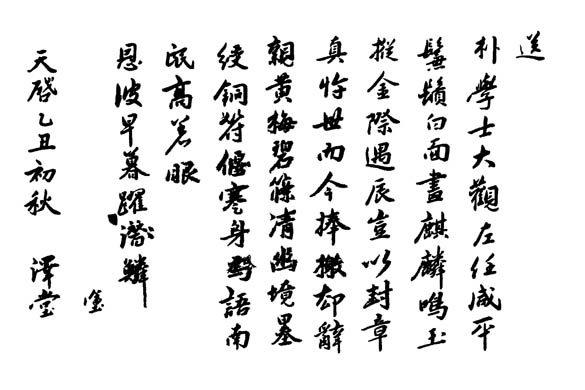 送
朴學士大觀左任咸平
鬑鬚白面畫麒麟鳴玉
摐金際遇辰豈以封章
真忤世而今捧檄却辭
親黃梅碧篠清幽境墨
綬銅符偃蹇身野語南
氓高著眼
恩波早暮躍潛鱗
天啓乙丑初秋 澤堂